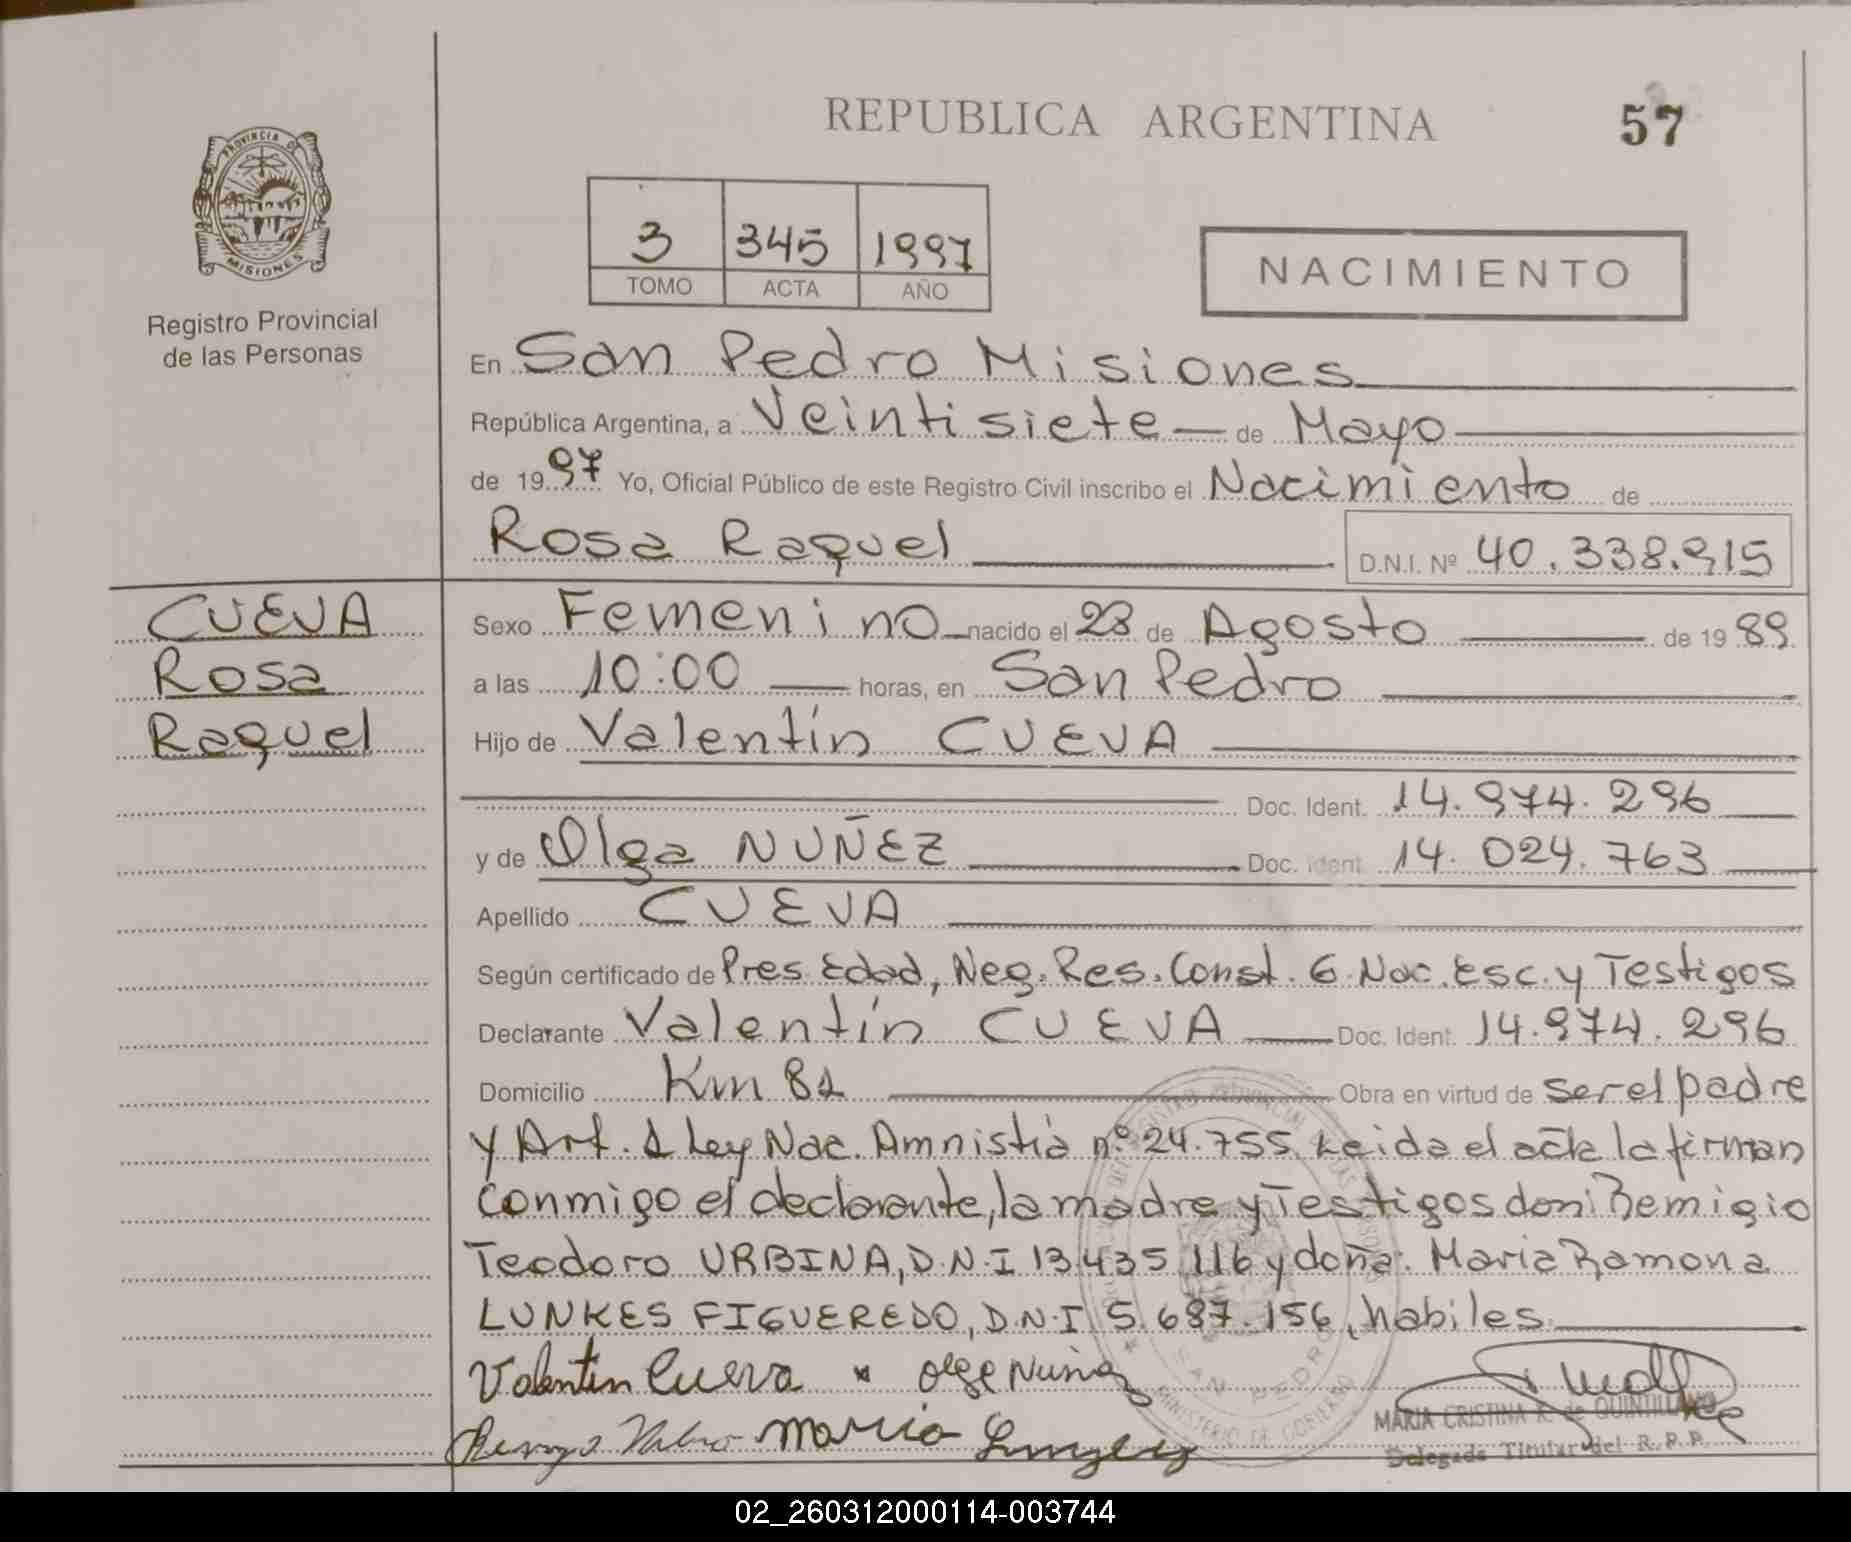 REPUBLICA ARGENTINA
57
PROVINCIA DE
MISIONES
Registro Provincial
de las Personas
3 345 1997
TOMO ACTA AÑO
NACIMIENTO
En San Pedro Misiones
República Argentina, a Veintisiete de Mayo
de 1997 Yo, Oficial Público de este Registro Civil inscribo el Nacimiento de
Rosa Raquel D.N.I. Nº 40.338.915
CUEVA
Rosa
Raquel
Sexo Femenino nacido el 28 de Agosto de 1989
a las 10:00 horas, en San Pedro
Hijo de Valentín CUEVA
Doc. Ident. 14.974.296
y de Olga NUÑEZ Doc. Ident. 14.024.763
Apellido CUEVA
Según certificado de Pres. Edad, Neg. Res. Const. 6 Nac. Esc. y Testigos
Declarante Valentín CUEVA Doc. Ident. 14.974.296
Domicilio Km 81 Obra en virtud de ser el padre
y Art. 1 Ley Nac. Amnistía nº 24.755. Leida el acta la firman
conmigo el declarante, la madre y Testigos don: Remigio
Teodoro URBINA, D.N.I 13.435.116 y doña: Maria Ramona
LUNKES FIGUEREDO, D.N.I 5.687.156, habiles
Valentin Cueva Olga Nuñez
Maria
SAN PEDRO
MINISTERIO DE GOBIERNO
MARIA CRISTINA R. de QUINTILLAN
Delegada Titular del R.P.P.
02_260312000114-003744